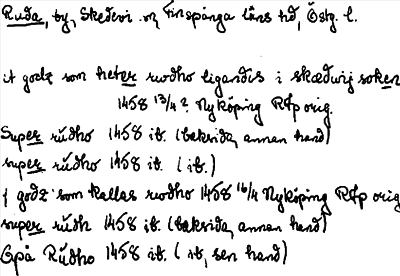 Ruda, by, Skedevi sn, Finspånga läns hd, Östg. l.
it godz som heter rwdho ligandis i skædwij soken
1458 13/4 ? Nyköping RAp orig.
Super rudho 1458 ib. (baksida, annan hand)
super rudho 1458 ib. (ib.)
j godz som kallas rwodho 1458 16/4 Nyköping RAp orig
super rudh 1458 ib. (baksida, annan hand)
Opå Rudho 1458 ib. (ib, sen hand)